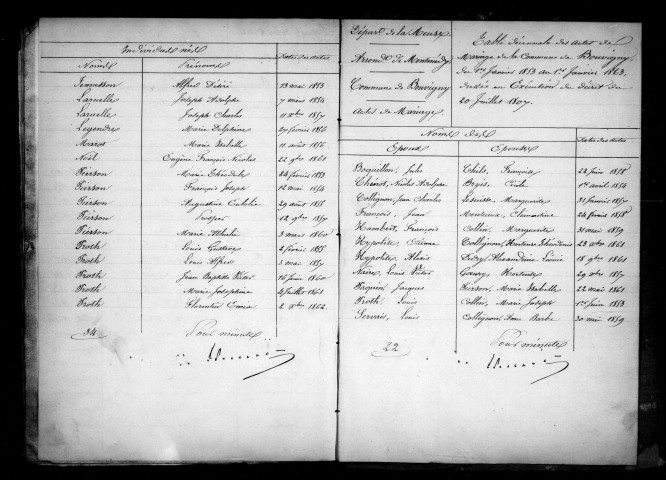 Individus nés
Noms Prénoms Dates des Actes
Jennesson Alfred Désiré 13 mai 1853
Laruelle Joseph Adolphe 7 mars 1854
Laruelle Joseph Charles 11 Xbre 1857
Legendre Marie Delphine 27 février 1856
Marot Marie Isabelle 11 août 1856
Noël Eugène François Nicolas 22 9bre 1861
Pierson Marie 24 février 1853
Pierson François Joseph 12 mai 1854
Pierson Augustine 29 avril 1855
Pierson Prosper 12 9bre 1857
Pierson Marie Athalie 3 mars 1860
Proth Louis Gustave 2 février 1855
Proth Louis Alfred 3 mai 1857
Proth Jean Baptiste Victor 16 juin 1860
Proth Marie Joséphine 4 juillet 1861
Proth Florentin 2 Xbre 1862
34 Pour minute
Départ. de la Meuse
Arrond. de Montmédy
Commune de Bouvigny
Actes de Mariage
Table décennale des actes de
Mariage de la Commune de Bouvigny
du 1er Janvier 1853 au 1er Janvier 1863.
dressée en Exécution du décret du
20 Juillet 1807
Noms des
Epoux Epouses Dates des Actes
Boquillon, Jules Françoise 22 1858
Nicolas Adolphe Cécile 1er août 1854
Collignon, Jean Charles Marguerite 31 janvier 1857
François, Jean Clémentine 24 février 1858
Humbert, François Collin, Marguerite 31 mai 1859
Hypolite, Etienne Collignon, 23 Xbre 1861
Hypolite, Alexis Alexandrine 18 9bre 1861
Louis Victor Hortense 29 Xbre 1857
Jacques Pierson, Marie Isabelle 22 mai 1861
Proth, Louis Collin, Marie Joseph 1er juin 1853
Servais, Louis Collignon, Anne Barbe 30 mai 1859
22 Pour minute